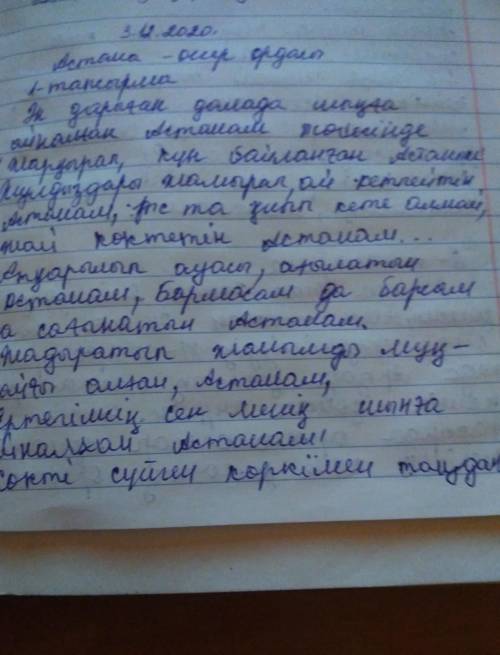 3.12.2020.
Астана - өнер ордасы
1-тапсырма
далада шыңға
айналған Астанам төсінде
Жарқырап, күн байланған Астанам
Жұлдыздары жамырап, ай кетпейтін
Астанам, құс та ұшып кете алмай,
жай көктетін Астанам...
ауасы, ағылатын
Астанам, Бармасам да барсам
а сағынатын Астанам.
Жадыратып жанымды мұң-
айды алған, Астанам,
Ертегімнің сен менің шыңға
Айналған Астанам!
Көкті сүйген көркімен таңдан